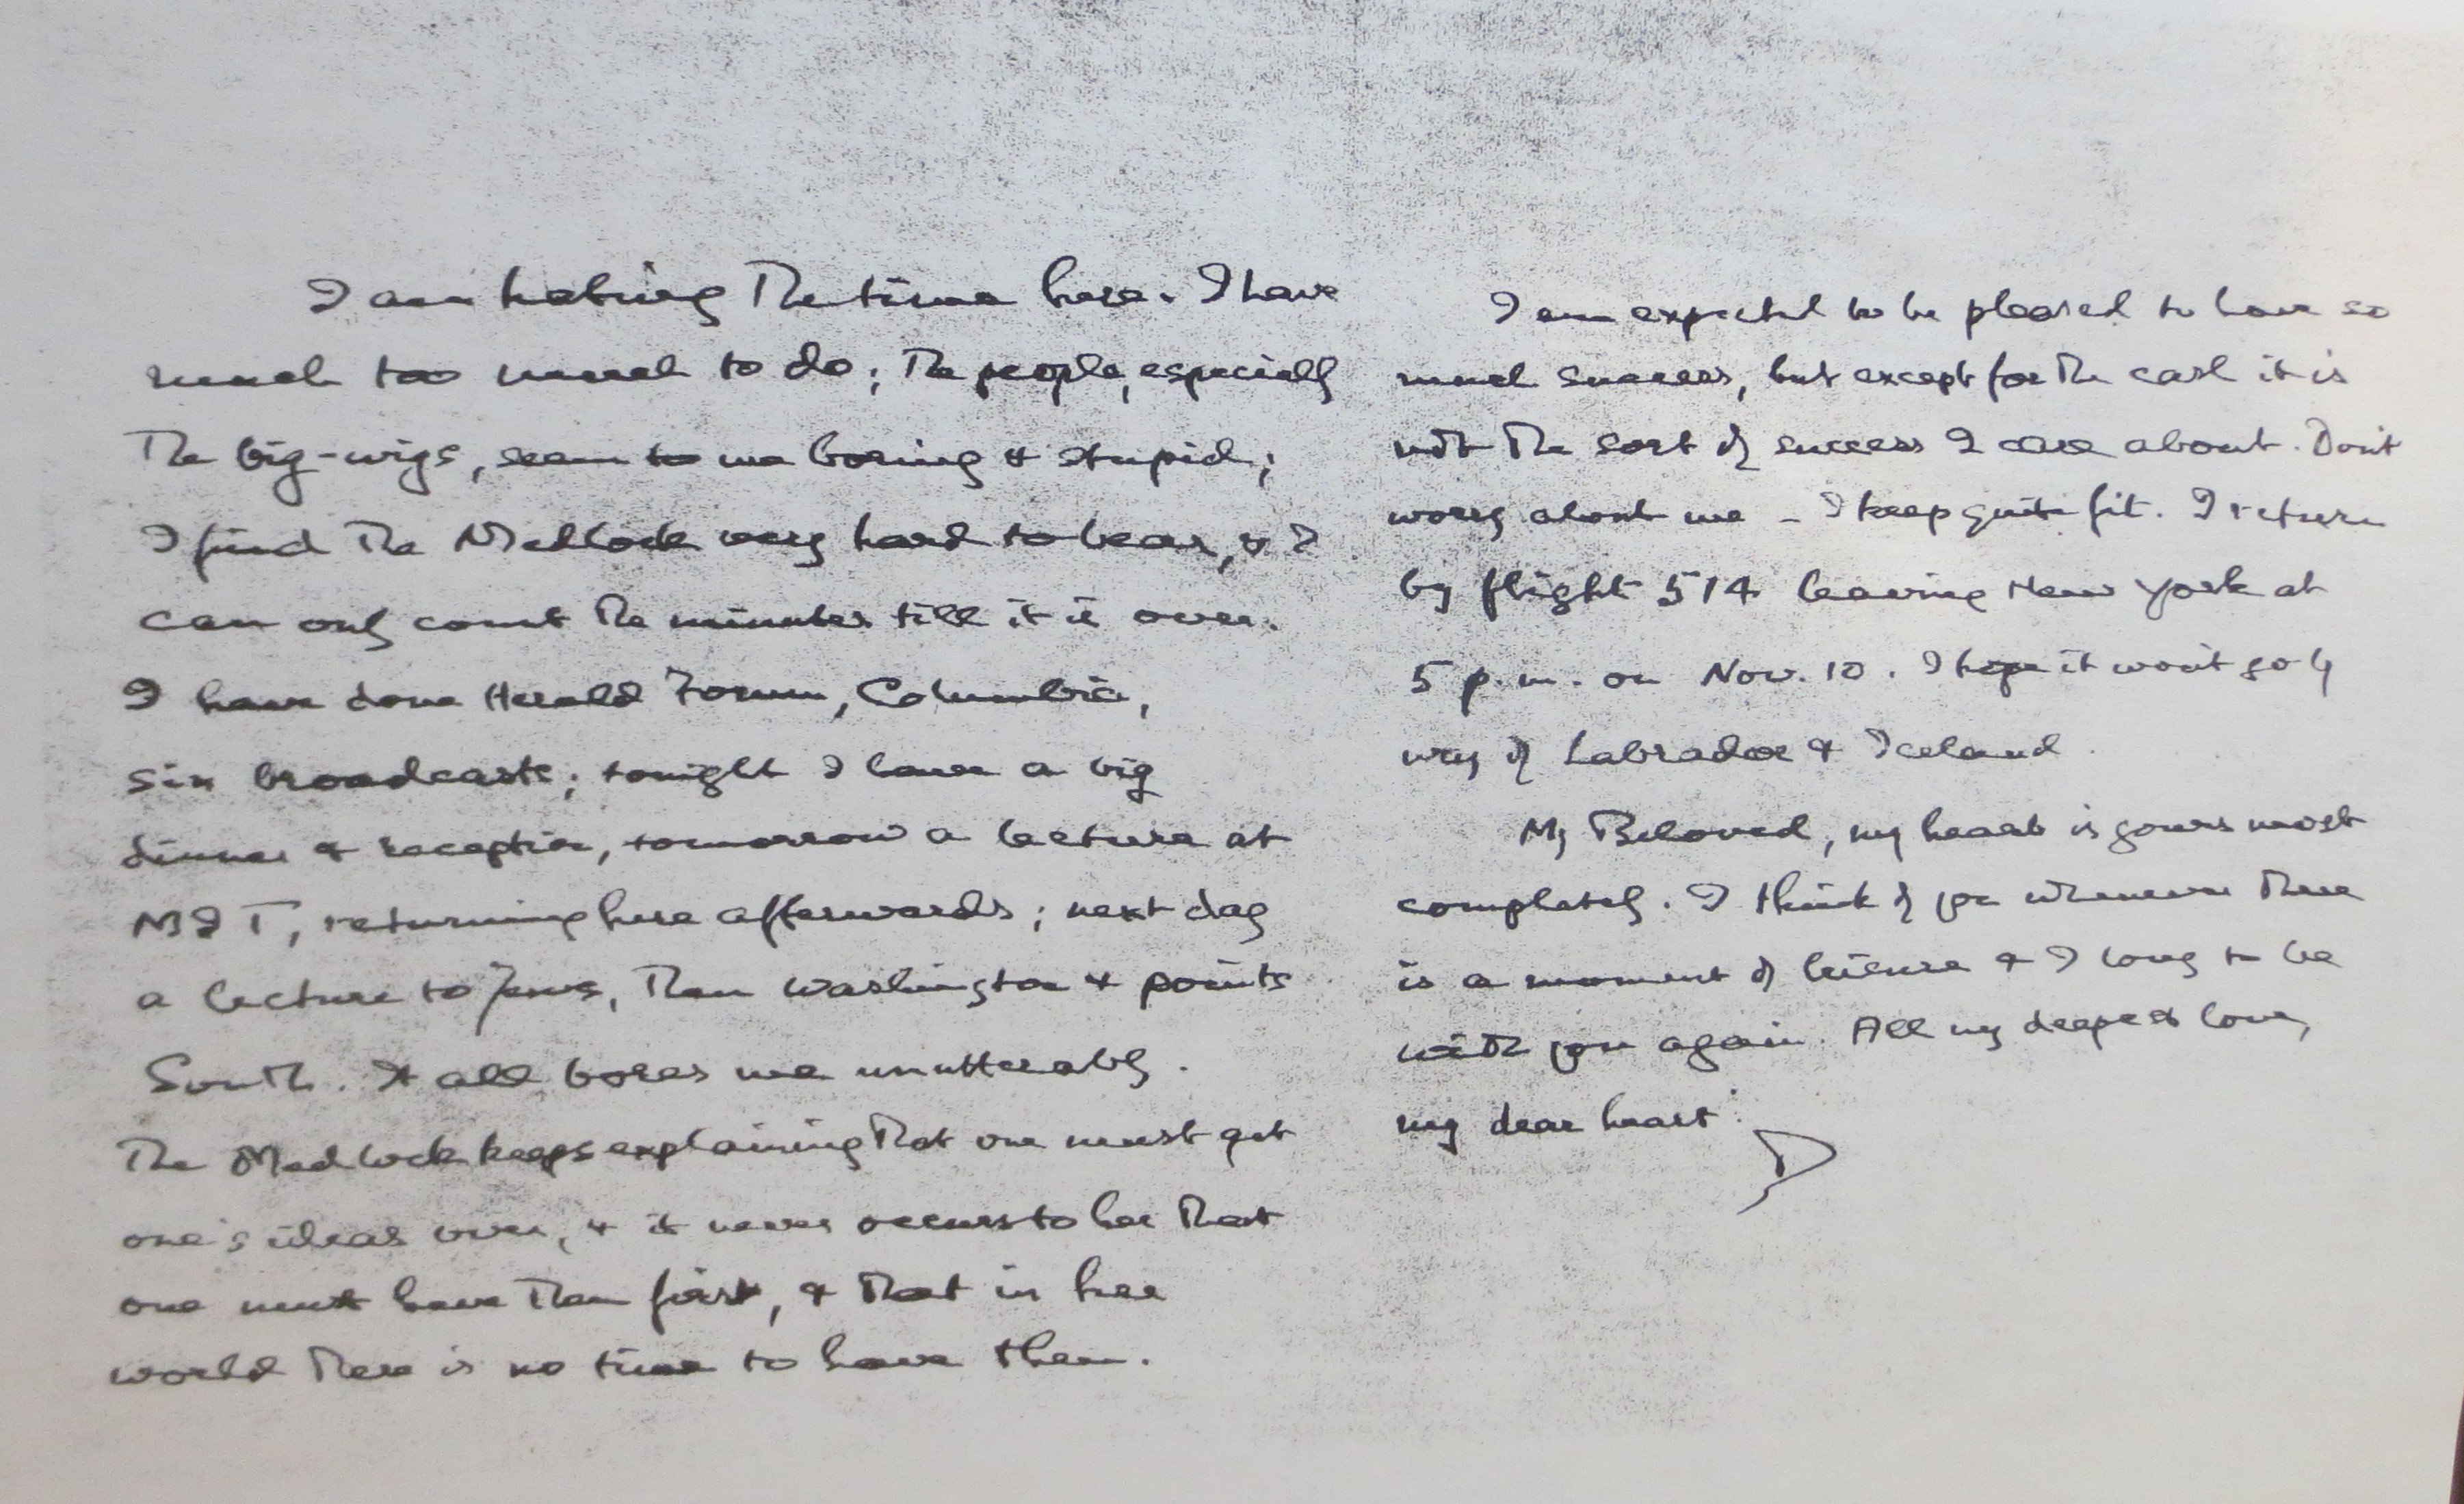 I am hating the time here. I have
much too much to do; the people, especially
the big-wigs, seem to me boring & stupid;
I find the Medlock very hard to bear, & I
can only count the minutes till it is over.
I have done Herald Forum, Columbia,
six broadcasts; tonight I have a big
dinner & reception, tomorrow a lecture at
MIT, returning here afterwards; next day
a lecture to Jews, then Washington & points
South. It all bores me unutterably.
The Medlock keeps explaining that one must get
one's ideas over, & it never occurs to her that
one must have them first, & that in her
world there is no time to have them.
I am expected to be pleased to have so
much success, but except for the cash it is
not the sort of success I care about. Don't
worry about me – I keep quite fit. I return
by flight 514 leaving New York at
5 p.m. on Nov. 10. I hope it won't go by
way of Labrador & Iceland.
My Beloved, my heart is yours most
completely. I think of you whenever there
is a moment of leisure & I long to be
with you again. All my deepest love,
my dear heart.
D